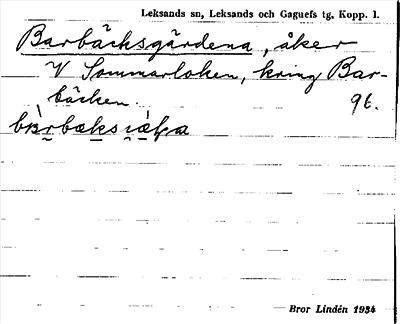 Leksands sn, Leksands och Gagnefs tg, Kopp. l.
Barbäcksgärdena, åker
V Sommarloken, kring Bar-
bäcken. 9t.
Bror Lindén 1934